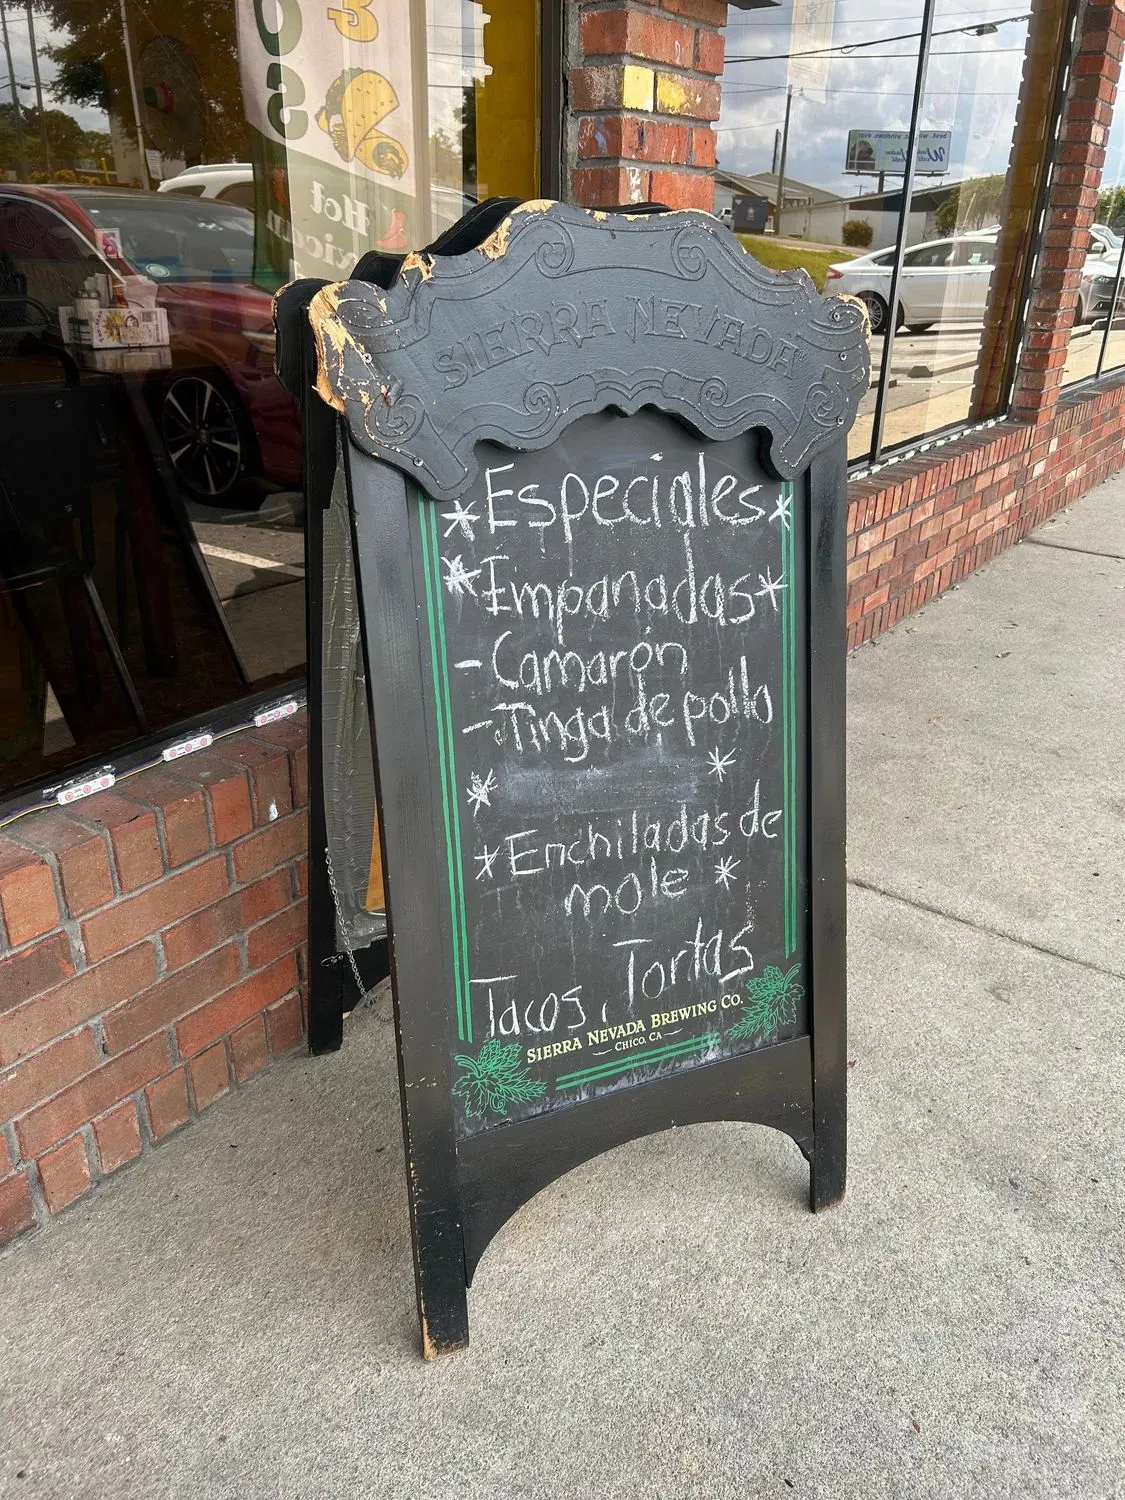 SIERRA NEVADA
*Especiales*
*Empanadas*
- Camarón
- Tinga de pollo
*
*
*Enchiladas de
mole *
Tacos, Tortas
SIERRA NEVADA BREWING CO.
CHICO, CA